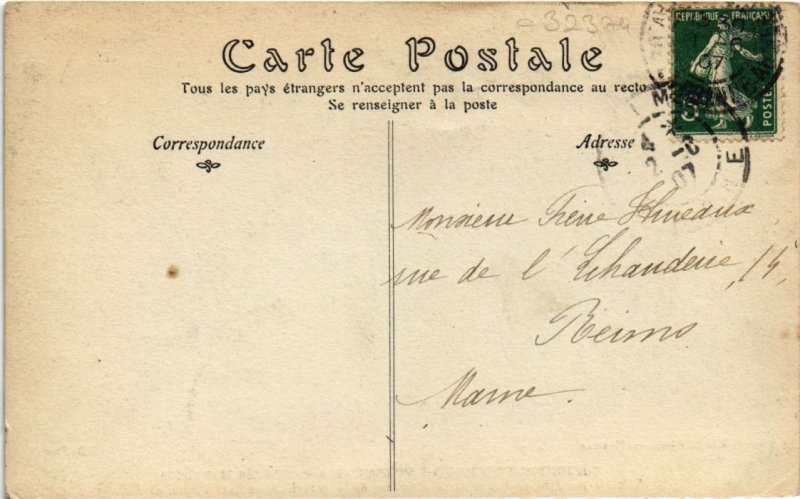 32384
Carte Postale
REPUBLIQUE FRANÇAISE
POSTES
Tous les pays étrangers n'acceptent pas la correspondance au recto
Se renseigner à la poste
Correspondance
Adresse
07
Monsieur
rue de l'
Reims
Marne